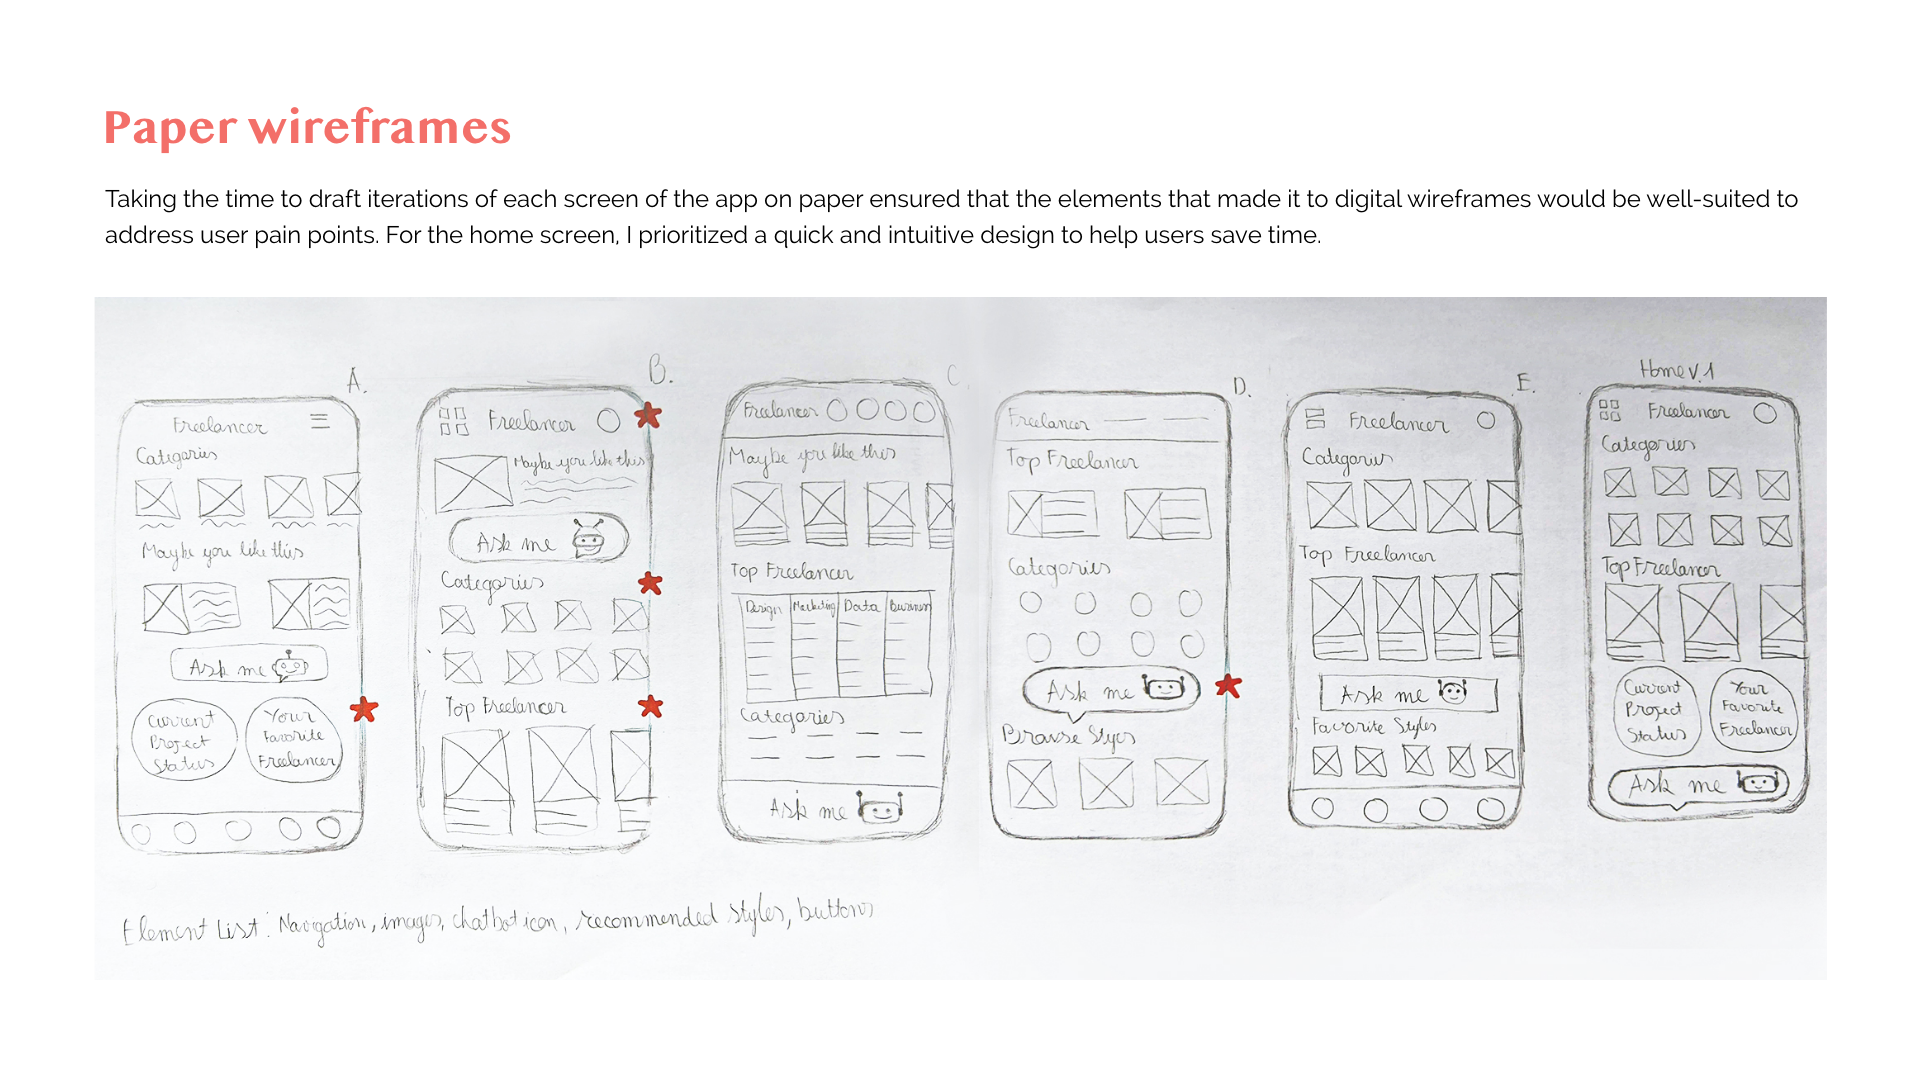 Paper wireframes
Taking the time to draft iterations of each screen of the app on paper ensured that the elements that made it to digital wireframes would be well-suited to
address user pain points. For the home screen, I prioritized a quick and intuitive design to help users save time.
A.
Freelancer
Categories
Maybe you like this
Ask me
Current
Project
Status
Your
Favorite
Freelancer
B.
Freelancer
Maybe you like this
Ask me
Categories
Top Freelancer
C.
Freelancer
Maybe you like this
Top Freelancer
Design Marketing Data Business
Categories
Ask me
D.
Freelancer
Top Freelancer
Categories
Ask me
Browse Styes
E.
Freelancer
Categories
Top Freelancer
Ask me
Favorite Styles
Home v.1
Freelancer
Categories
Top Freelancer
Current
Project
Status
Your
Favorite
Freelancer
Ask me
Element List: Navigation, images, chatbot icon, recommended styles, buttons